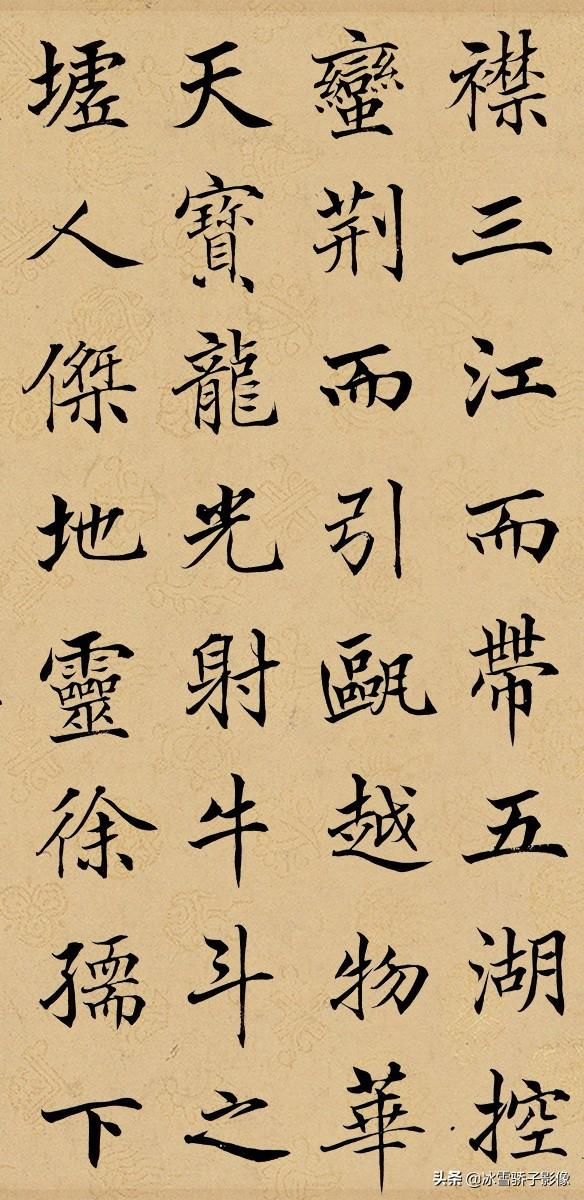 襟三江而帶五湖控
蠻荊而引甌越物華
天寶龍光射牛斗之
墟人傑地靈徐孺下
头条 @冰雪骄子影像